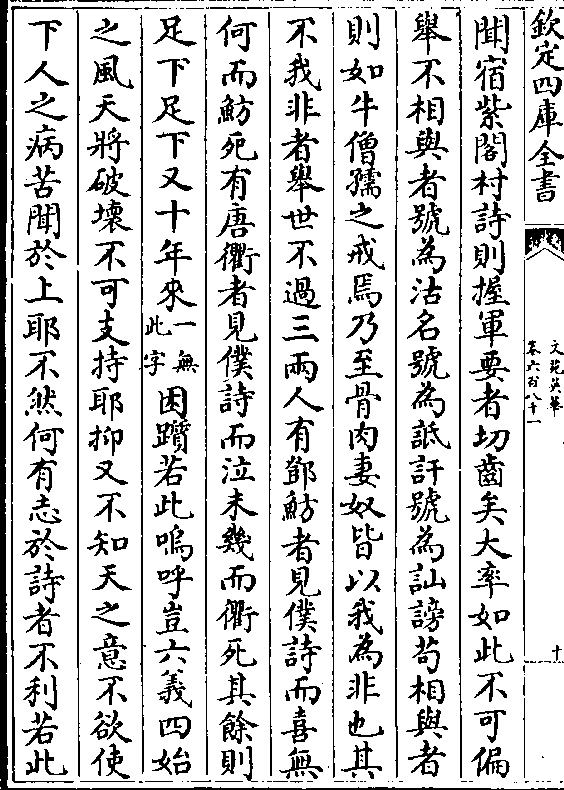 欽定四庫全書
文苑英華
卷六百八十一
十
聞宿紫閣村詩則握軍要者切齒矣大率如此不可徧
舉不相與者號為沽名號為詆訐號為訕謗苟相與者
則如牛僧孺之戒焉乃至骨肉妻奴皆以我為非也其
不我非者舉世不過三兩人有鄧魴者見僕詩而喜無
何而魴死有唐衢者見僕詩而泣未幾而衢死其餘則
足下足下又十年來一無此字困躓若此嗚呼豈六義四始
之風天將破壞不可支持耶抑又不知天之意不欲使
下人之病苦聞於上耶不然何有志於詩者不利若此